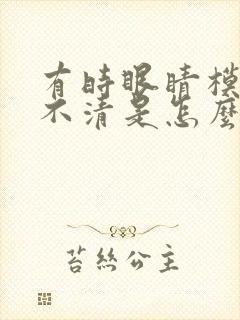 有時眼睛模
不清是怎麼
苔絲公主